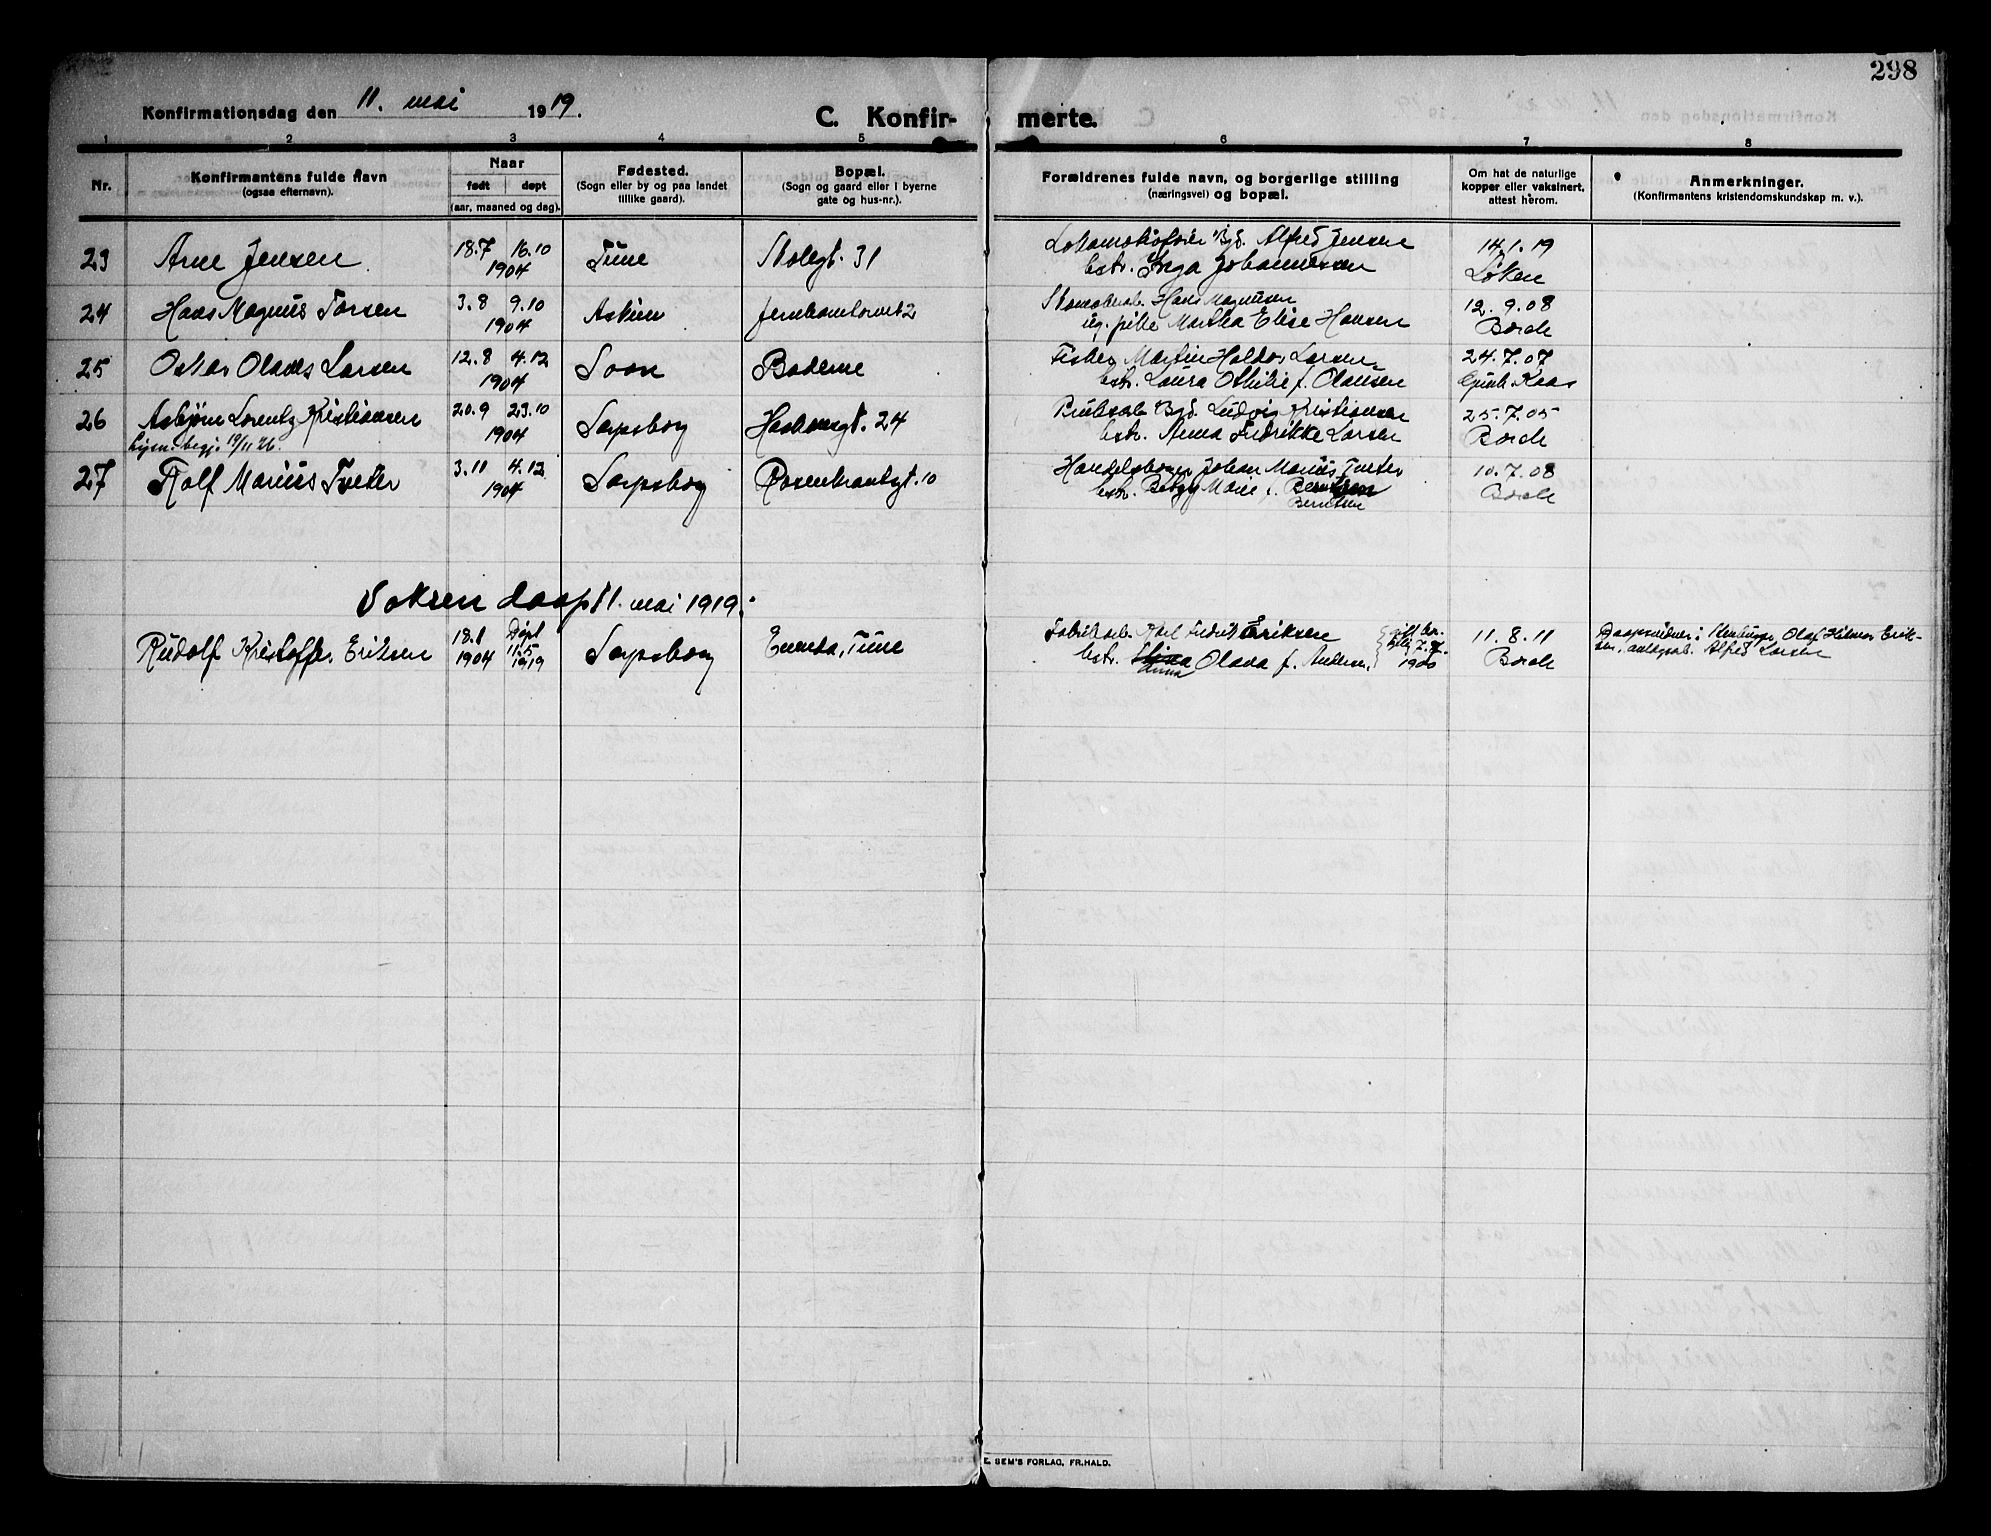 298
Konfirmationsdag den 11. mai 1919.
C. Konfir-
merte.
1 2 3 4 5 6 7 8
Nr.
Konfirmantens fulde navn
(ogsaa efternavn).
Naar
født døpt
(aar, maaned og dag).
Fødested.
(Sogn eller by og paa landet
tillike gaard).
Bopæl.
(Sogn og gaard eller i byerne
gate og hus-nr.).
Forældrenes fulde navn, og borgerlige stilling
(næringsvei) og bopæl.
Om hat de naturlige
kopper eller vaksinert,
attest herom.
Anmerkninger.
(Konfirmantens kristendomskundskap m. v.).
23 Arne Jensen 18.7 16.10 1904 Tune Skolegt. 31
Alfred Jensen
hstr. Inga Johannessen
14/1. 19
Løken
24 Hans Magnus Torsen 3.8 9.10 1904 Askim
Hans Magnusen
ug. pike Martha Elise Hansen
12. 9. 08
Borch
25 Oskar Olaves Larsen 12.8 4.12 1904 Soon Baderne
Fisker Martin Haldor Larsen
hstr. Laura Othilie f. Olausen
24. 7. 07
Kaas
26 Asbjørn Lorentz Kristiansen 20.9 23.10 1904 Sarpsborg 24
lysn. begj. 19/11 26.
Ludvig Kristiansen
hstr. Anna Fredrikke Larsen
25. 7. 05
Borch
27 Rolf Marius Tveter 3.11 4.12 1904 Sarpsborg Rosenkrantzgt. 10
Johan Marius Tveter
hstr. Marie f. Berntsen
Berntsen
10. 7. 08
Borch
Voksen daap 11. mai 1919.
Rudolf Kristoffer Eriksen 18.1 1904 Døpt 11.5 1919 Sarpsborg Enenda, Tune
Fabrikarb. Karl Fredrik Eriksen
hstr. Stina Olava f. Andersen,
Anna
gift bor.
7. 7.
1900
11. 8. 11
Borch
Daapsvidner: Olaf Hilmar Erik-
sen, anlægsarb. Alfred Larsen
E. SEM'S FORLAG, FR.HALD.